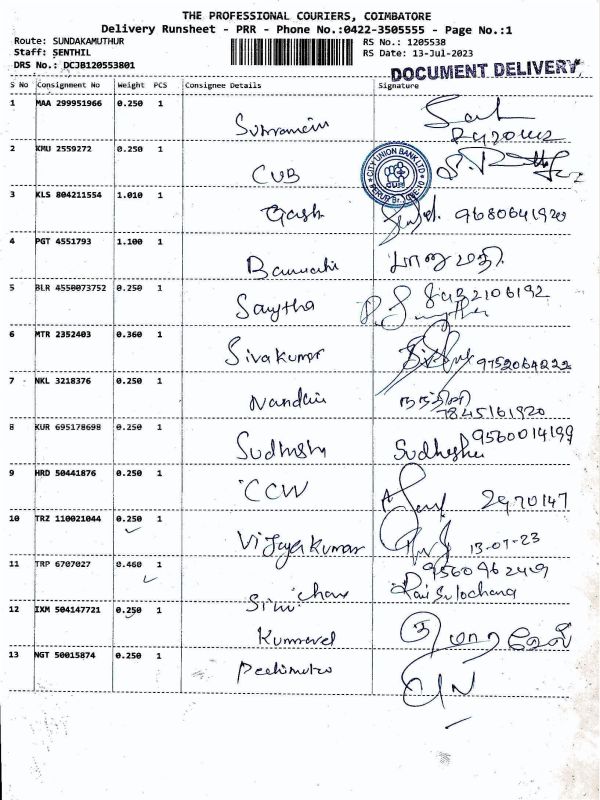 THE PROFESSIONAL COURIERS, COIMBATORE
Delivery Runsheet - PRR - Phone No.:0422-3505555 - Page No.:1
Route: SUNDAKAMUTHUR RS No.: 1205538
Staff: SENTHIL RS Date: 13-Jul-2023
DRS No.: DCJB120553801 DOCUMENT DELIVERY
S No Consignment No Weight PCS Consignee Details Signature
1 MAA 299951966 0.250 1
2 KMU 2559272 0.250 1
CUB CITY UNION BANK LTD
3 KLS 804211554 1.010 1
9680641920
4 PGT 4551793 1.100 1
பானுமதி
5 BLR 4550073752 0.250 1
Saytha
6 MTR 2352403 0.360 1
Sivakumar 9752064222
7 NKL 3218376 0.250 1
Nandhini நந்தினி
7845161920
8 KUR 695178698 0.250 1
9560014199
Sudhesh
9 HRD 50441876 0.250 1
CCW 2970147
10 TRZ 110021044 0.250 1
Vijayakumar 13-07-23
11 TRP 6707027 0.460 1
9560962449
Sulochana
12 IXM 504147721 0.250 1
Kumaravel குமாரவேல்
13 NGT 50015874 0.250 1